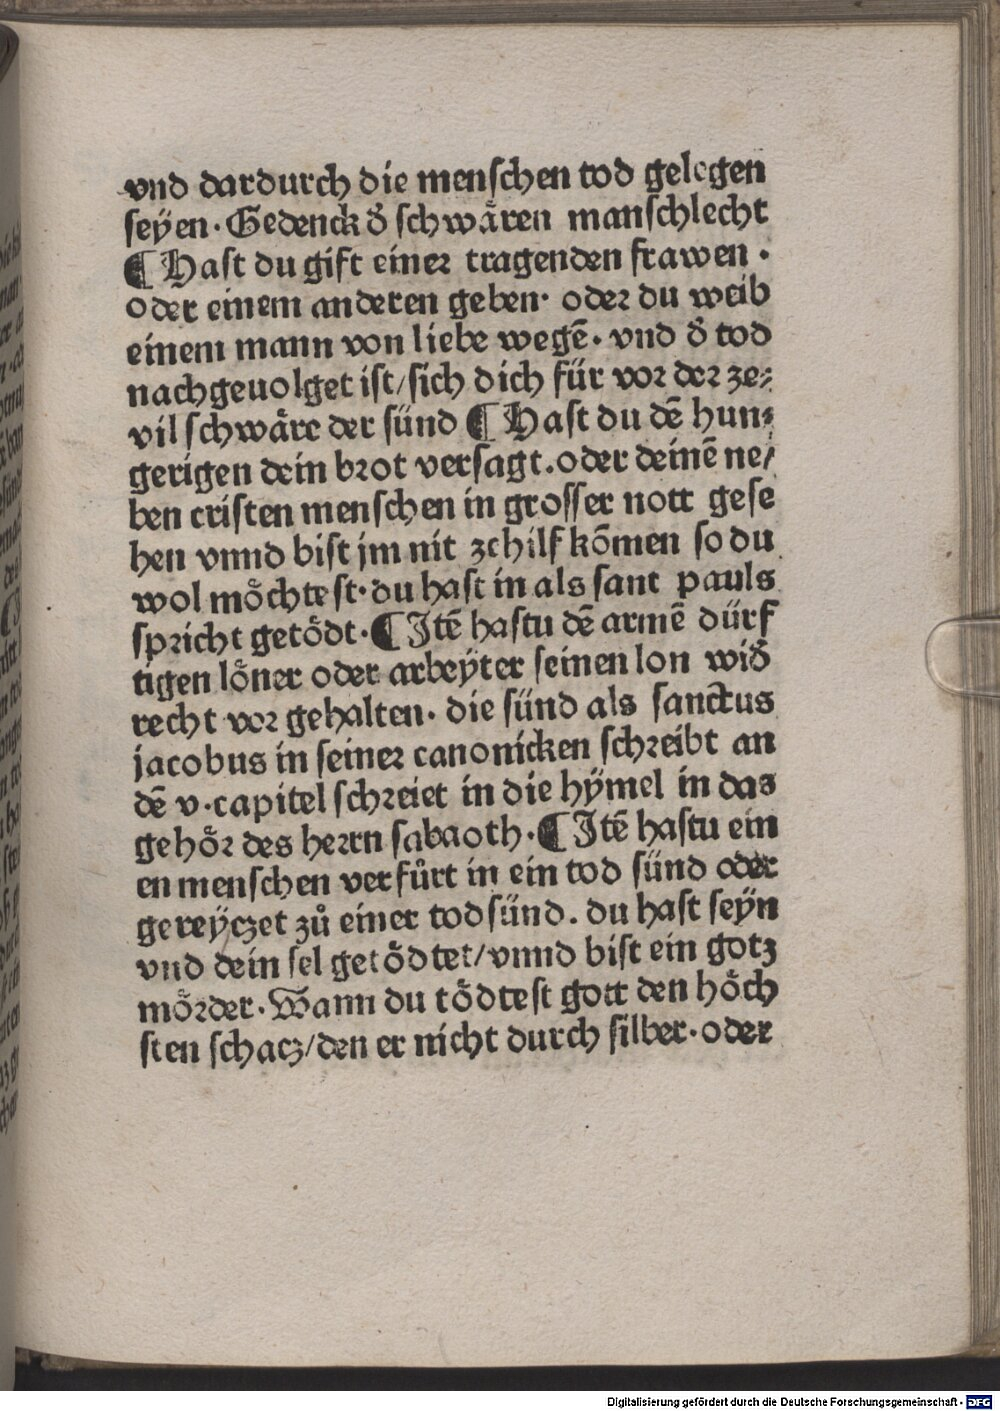 vnd dardurch die menschen tod gelegen
seyen. Gedenck d̕ schwåren manschlecht
¶ Hast du gift einer tragenden frawen .
oder einem anderen geben. oder du weib
einem mann von liebe wegē. vnd d̕ tod
nachgeuolget ist/sich dich für vor der ze⸗
vil schwåre der sünd ¶ Hast du dē hun⸗
gerigen dein brot versagt.oder deinē ne/
ben cristen menschen in grosser nott gese
hen vnnd bist jm nit zehilf kōmen so du
wol möchtest. du hast in als sant pauls
spricht getödt. ¶ Itē hastu dē armē dürf
tigen löner oder arbeÿter seinen lon wid̕
recht vor gehalten. die sünd als sanctus
jacobus in seiner canonicken schreibt an
dē v.capitel schreiet in die hÿmel in das
gehör des herrn sabaoth. ¶ Itē hastu ein
en menschen verfůrt in ein tod sünd oder
gereÿczet zů einer todsünd. du hast seÿn
vnd dein sel getödtet/vnnd bist ein gotz
mörder. Wann du tödtest gott den höch
sten schacz/den er nicht durch silber.oder
Digitalisierung gefördert durch die Deutsche Forschungsgemeinschaft - DFG